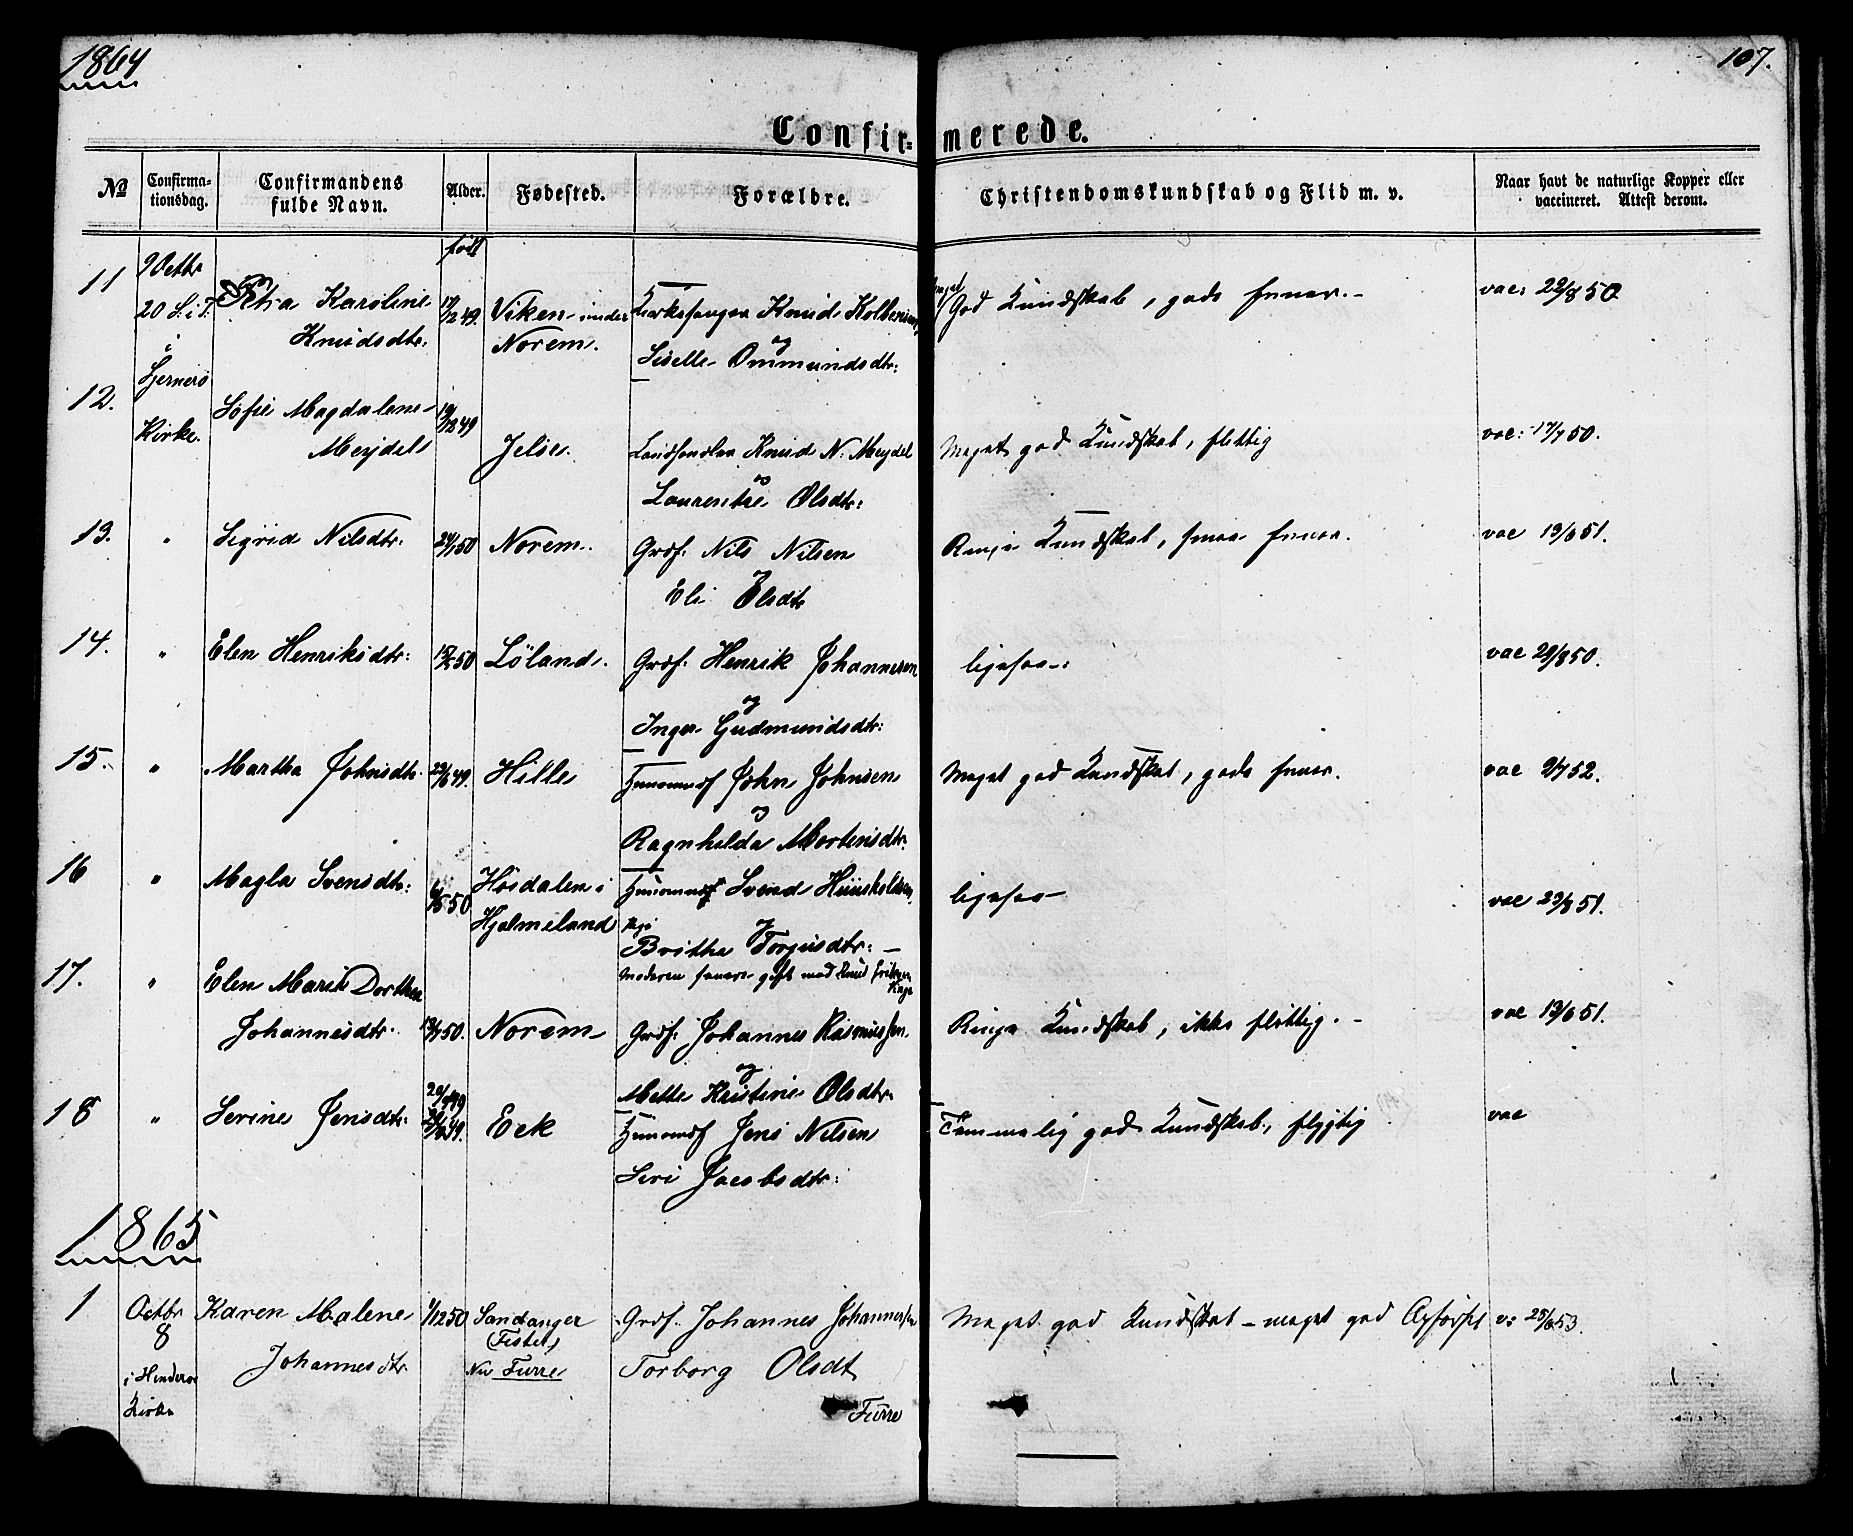 1864
107.
Confir= merede.
No
Confirma-
tionsdag.
Confirmandens
fulde Navn.
Alder.
Fødested.
Forældre.
Christendomskundskab og Flid m. v.
Naar havt de naturlige Kopper eller
vaccineret. Attest derom.
født
11 9 Octbr Petra Karoline 17/12 49. Viken under Kirkesanger Knud Kolbeinsen meget God Kundskab, gode Evner.- vac: 22/8 50
20 S. i T. Knudsdtr. Norem. og
i Siselle Ommundsdtr:
Sjernerø
12. Kirke. Sofie Magdalene 19/12 49 Jelse. Landhandler Knud N. Meydel Meget god Kundskab, flittig vac: 17/7 50.
Meydell og
Laurentze Olsdtr:
13. " Sigrid Nilsdtr. 24/1 50 Norem. Grdf. Nils Nilsen Ringe Kundskab, smaa Evner. vac 13/6 51.
Eli Olsdtr
14. " Elen Henriksdtr: 50 Løland. Grdf. Henrik Johannesen ligesaa vac 29/8 50.
og
Inger Gudmundsdtr:
15. " Martha Johnsdtr. 23/6 49. Hille Huusmd John Johnsen Meget god Kundskab, gode Evner. vac 9/7 52.
og
Ragnhilda Mortensdtr.
16 " Magla Svensdtr: 6/5 50 Høsdalen i Huusmd Svend ligesaa vac 23/8 51.
Hjelmeland
Britha Torjusdtr: -
Moderen senere gift med Knud
17. " Elen Marie Dorthea
Johannesdtr. 13/7 50. Norem Grdf. Johannes Rasmussen Ringe Kundskab, ikke flittig. - vac 13/6 51.
og
Mette Kristine Olsdtr.
18 " Serine Jensdtr. 49. Eek Huusmd Jens Nilsen Temmelig god Kundskab, flygtig vac
Siri Jacobsdtr:
1865
1 Octbr Karen Malene 1/12 50 Sandanger Grdf. Johannes Johannessen Meget god Kundskab - meget god Opførsel v: 25/6 53.
8 Johannesdtr (Fister) Torborg Olsdt
i Hinderaa Nu Furre
Kirke Furre